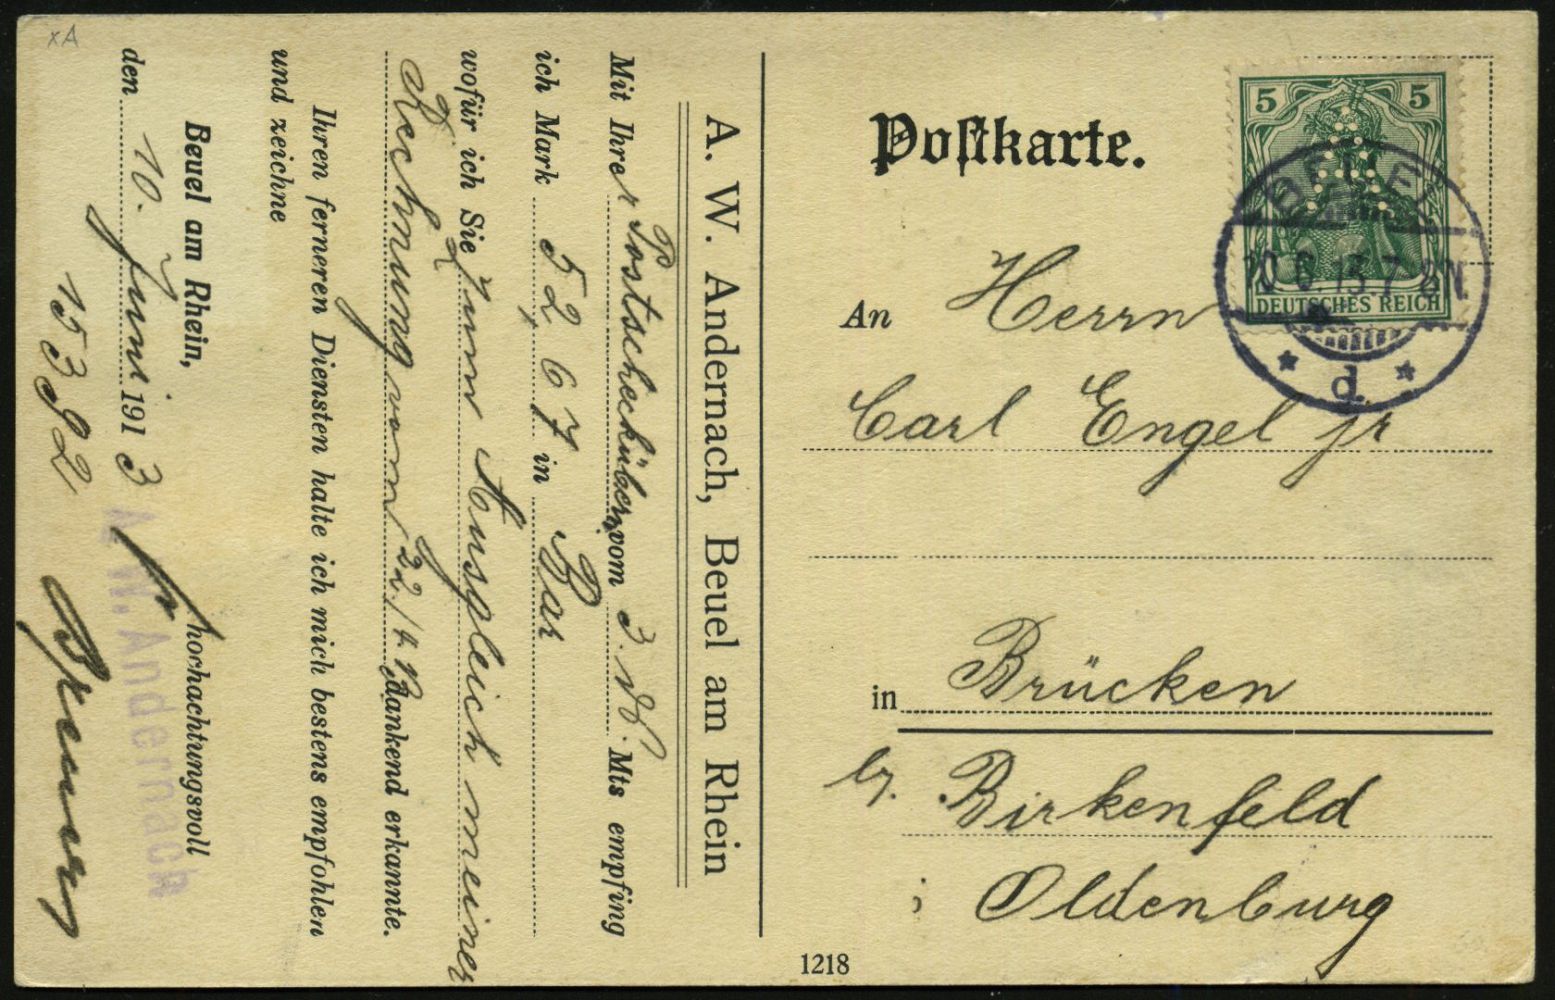 xA
A. W. Andernach, Beuel am Rhein
Mit Ihrer Postschecküberw. vom 3. ds. Mts empfing
ich Mark 52,67 in Bar
wofür ich Sie zum Ausgleich meiner
Rechnung vom 22./4. dankend erkannte.
Ihren ferneren Diensten halte ich mich bestens empfohlen
und zeichne
Beuel am Rhein, hochachtungsvoll
den 10. Juni 1913
A. W. Andernach
15392
Postkarte.
5 5
DEUTSCHES REICH
BEUEL
10.6.13.7-8N.
* d *
An Herrn
Carl Engel jr
in Brücken
by. Birkenfeld
i Oldenburg
1218